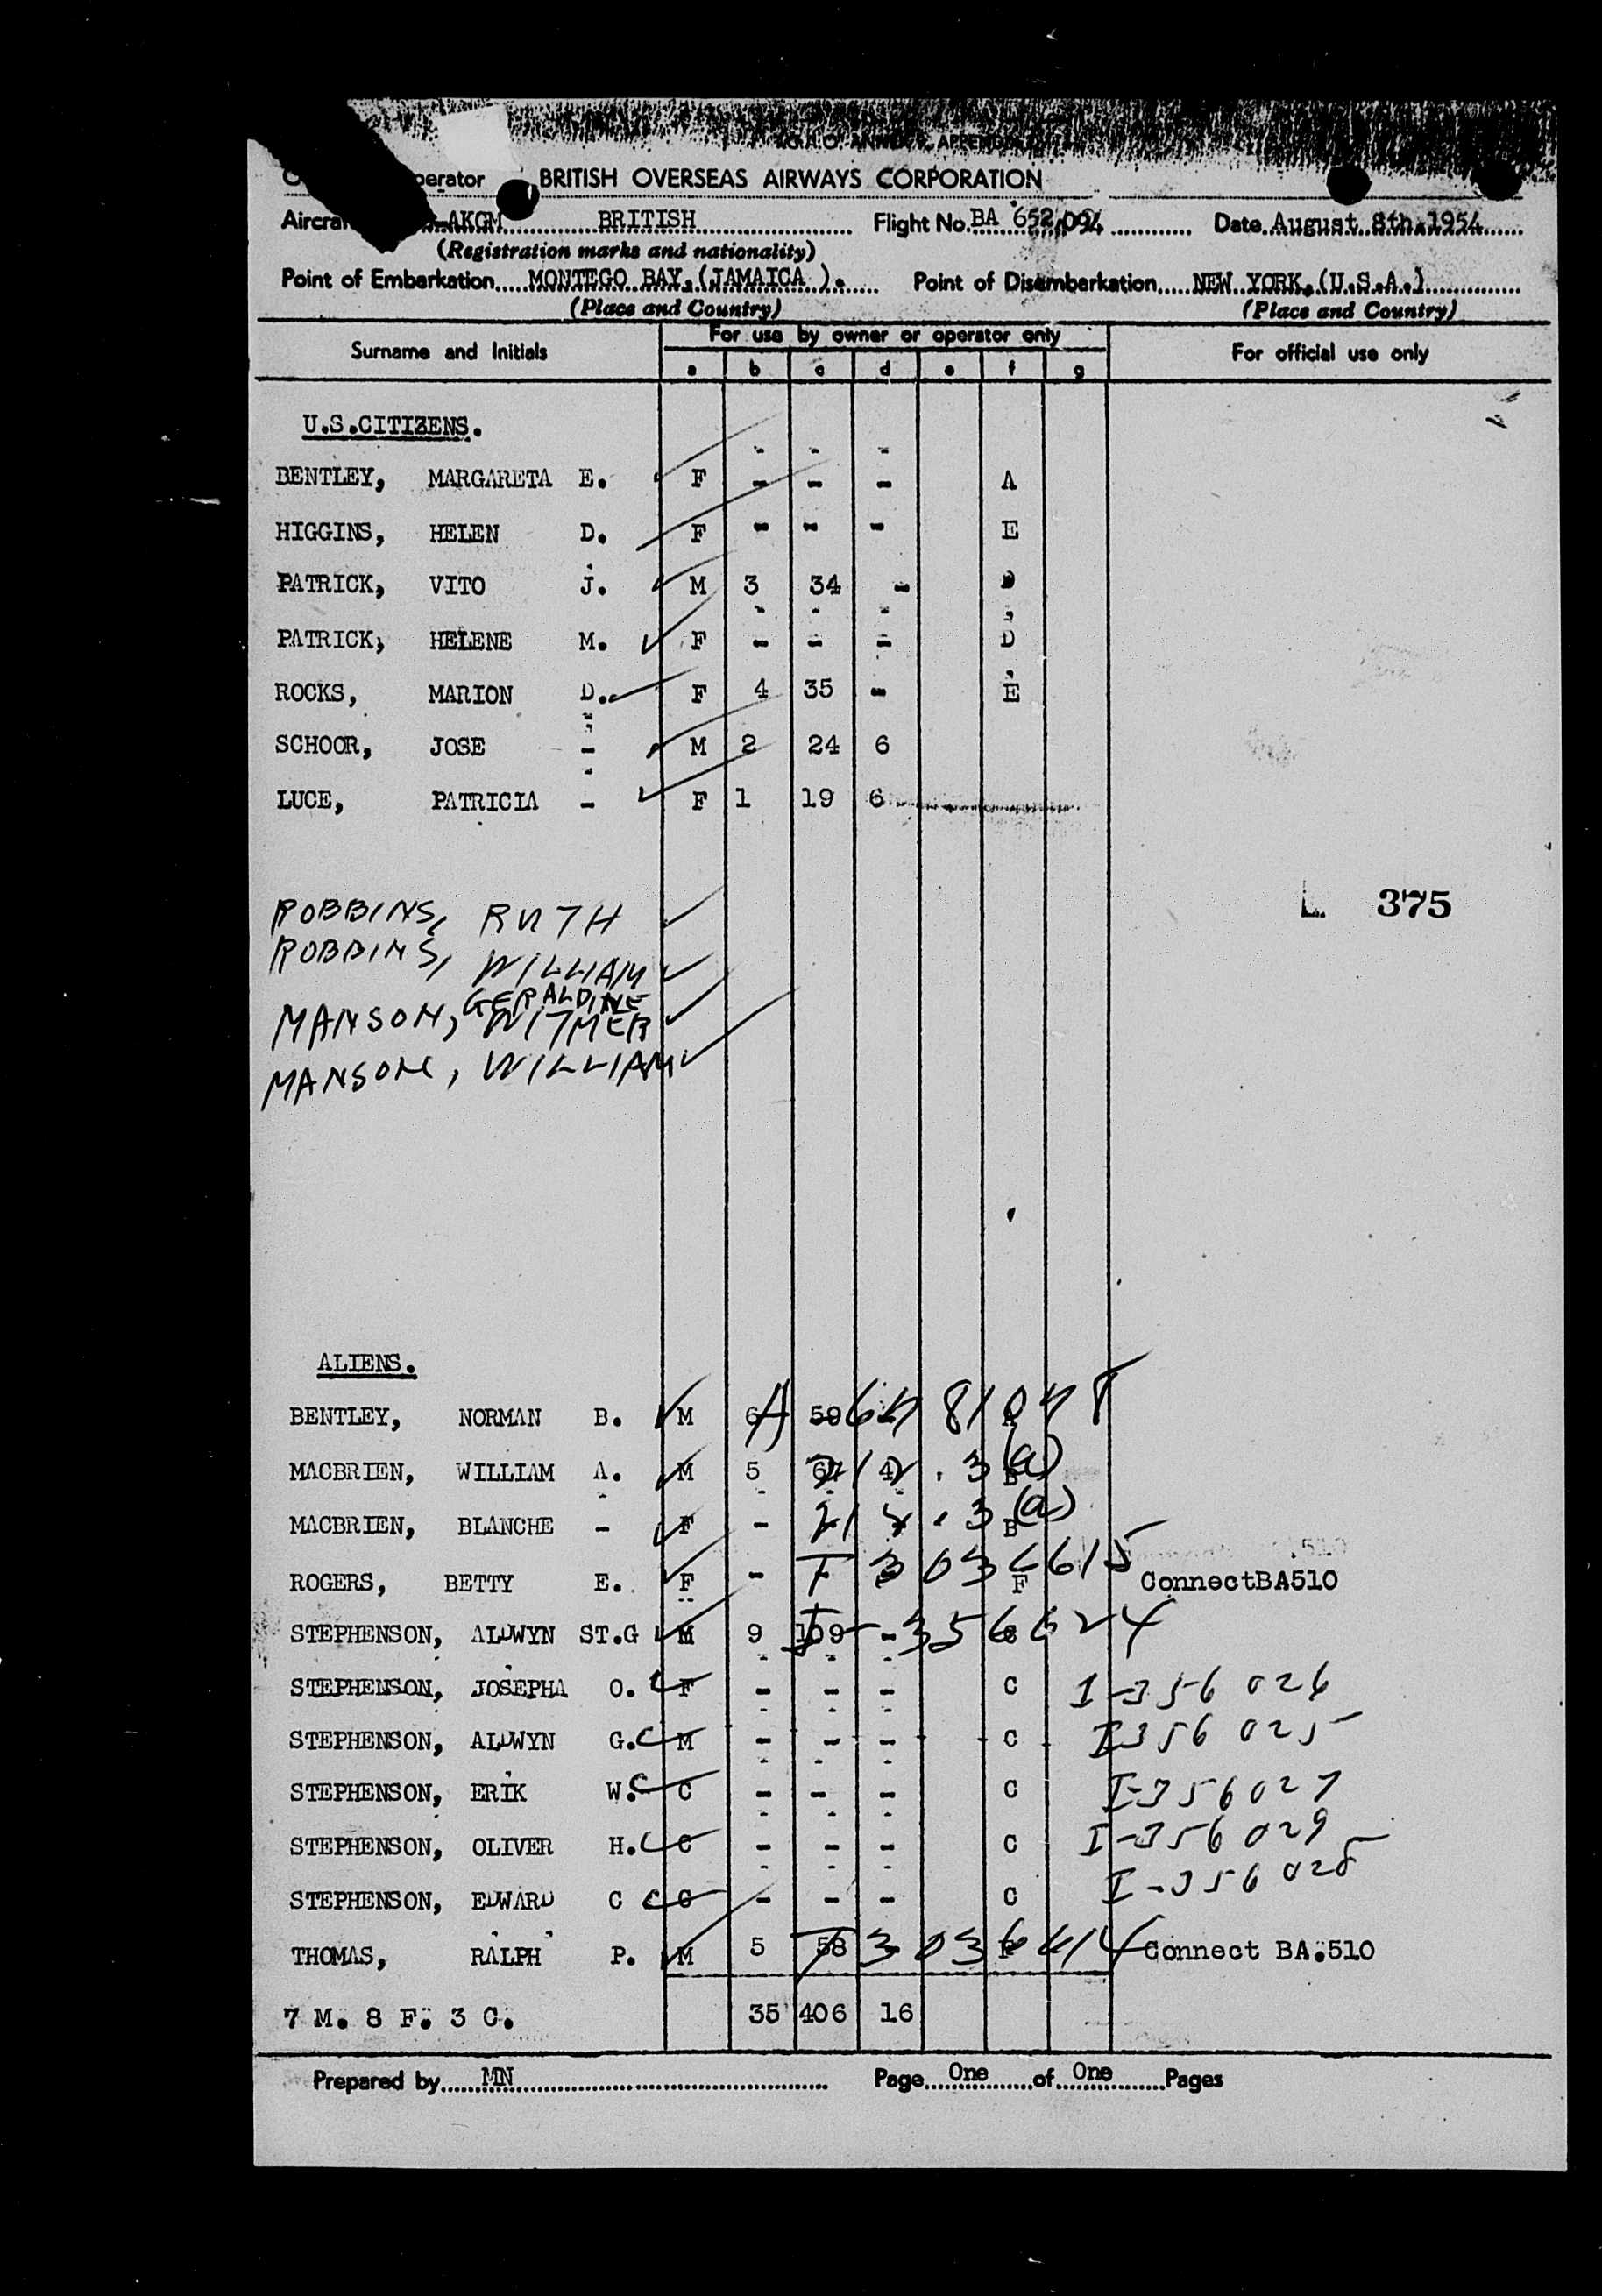 I.C.A.O. ANNEX 9, APPENDIX
Operator BRITISH OVERSEAS AIRWAYS CORPORATION
Aircraft -AKGM BRITISH Flight No. BA 652/094 Date August 8th.1954
(Registration marks and nationality)
Point of Embarkation MONTEGO BAY.(JAMAICA ). Point of Disembarkation NEW YORK.(U.S.A.)
(Place and Country) (Place and Country)
Surname and Initials For use by owner or operator only For official use only
a b c d e f g
U.S.CITIZENS.
BENTLEY, MARGARETA E. F - - - A
HIGGINS, HELEN D. F - - - E
PATRICK, VITO J. M 3 34 - D
PATRICK, HELENE M. F - - - D
ROCKS, MARION D. F 4 35 - E
SCHOOR, JOSE - M 2 24 6
LUCE, PATRICIA - F 1 19 6
L. 375
ROBBINS, RUTH
ROBBINS, WILLIAM
GERALDINE
MANSON, WITMER
MANSON, WILLIAM
ALIENS.
BENTLEY, NORMAN B. M 6 59 A
MACBRIEN, WILLIAM A. M 5 4 212.3(a) B
MACBRIEN, BLANCHE - F - 212.3(a) B
ROGERS, BETTY E. F - F ConnectBA510
STEPHENSON, ALDWYN ST.G M 9 109 - C
STEPHENSON, JOSEPHA O. F - - - C I-356026
STEPHENSON, ALDWYN G. M - - - C I-356025
STEPHENSON, ERIK W. C - - - C I-356027
STEPHENSON, OLIVER H. C - - - C I-356029
STEPHENSON, EDWARD C C - - - C I-356028
THOMAS, RALPH P. M 5 58 F Connect BA.510
7 M. 8 F. 3 C. 35 406 16
Prepared by MN Page One of One Pages